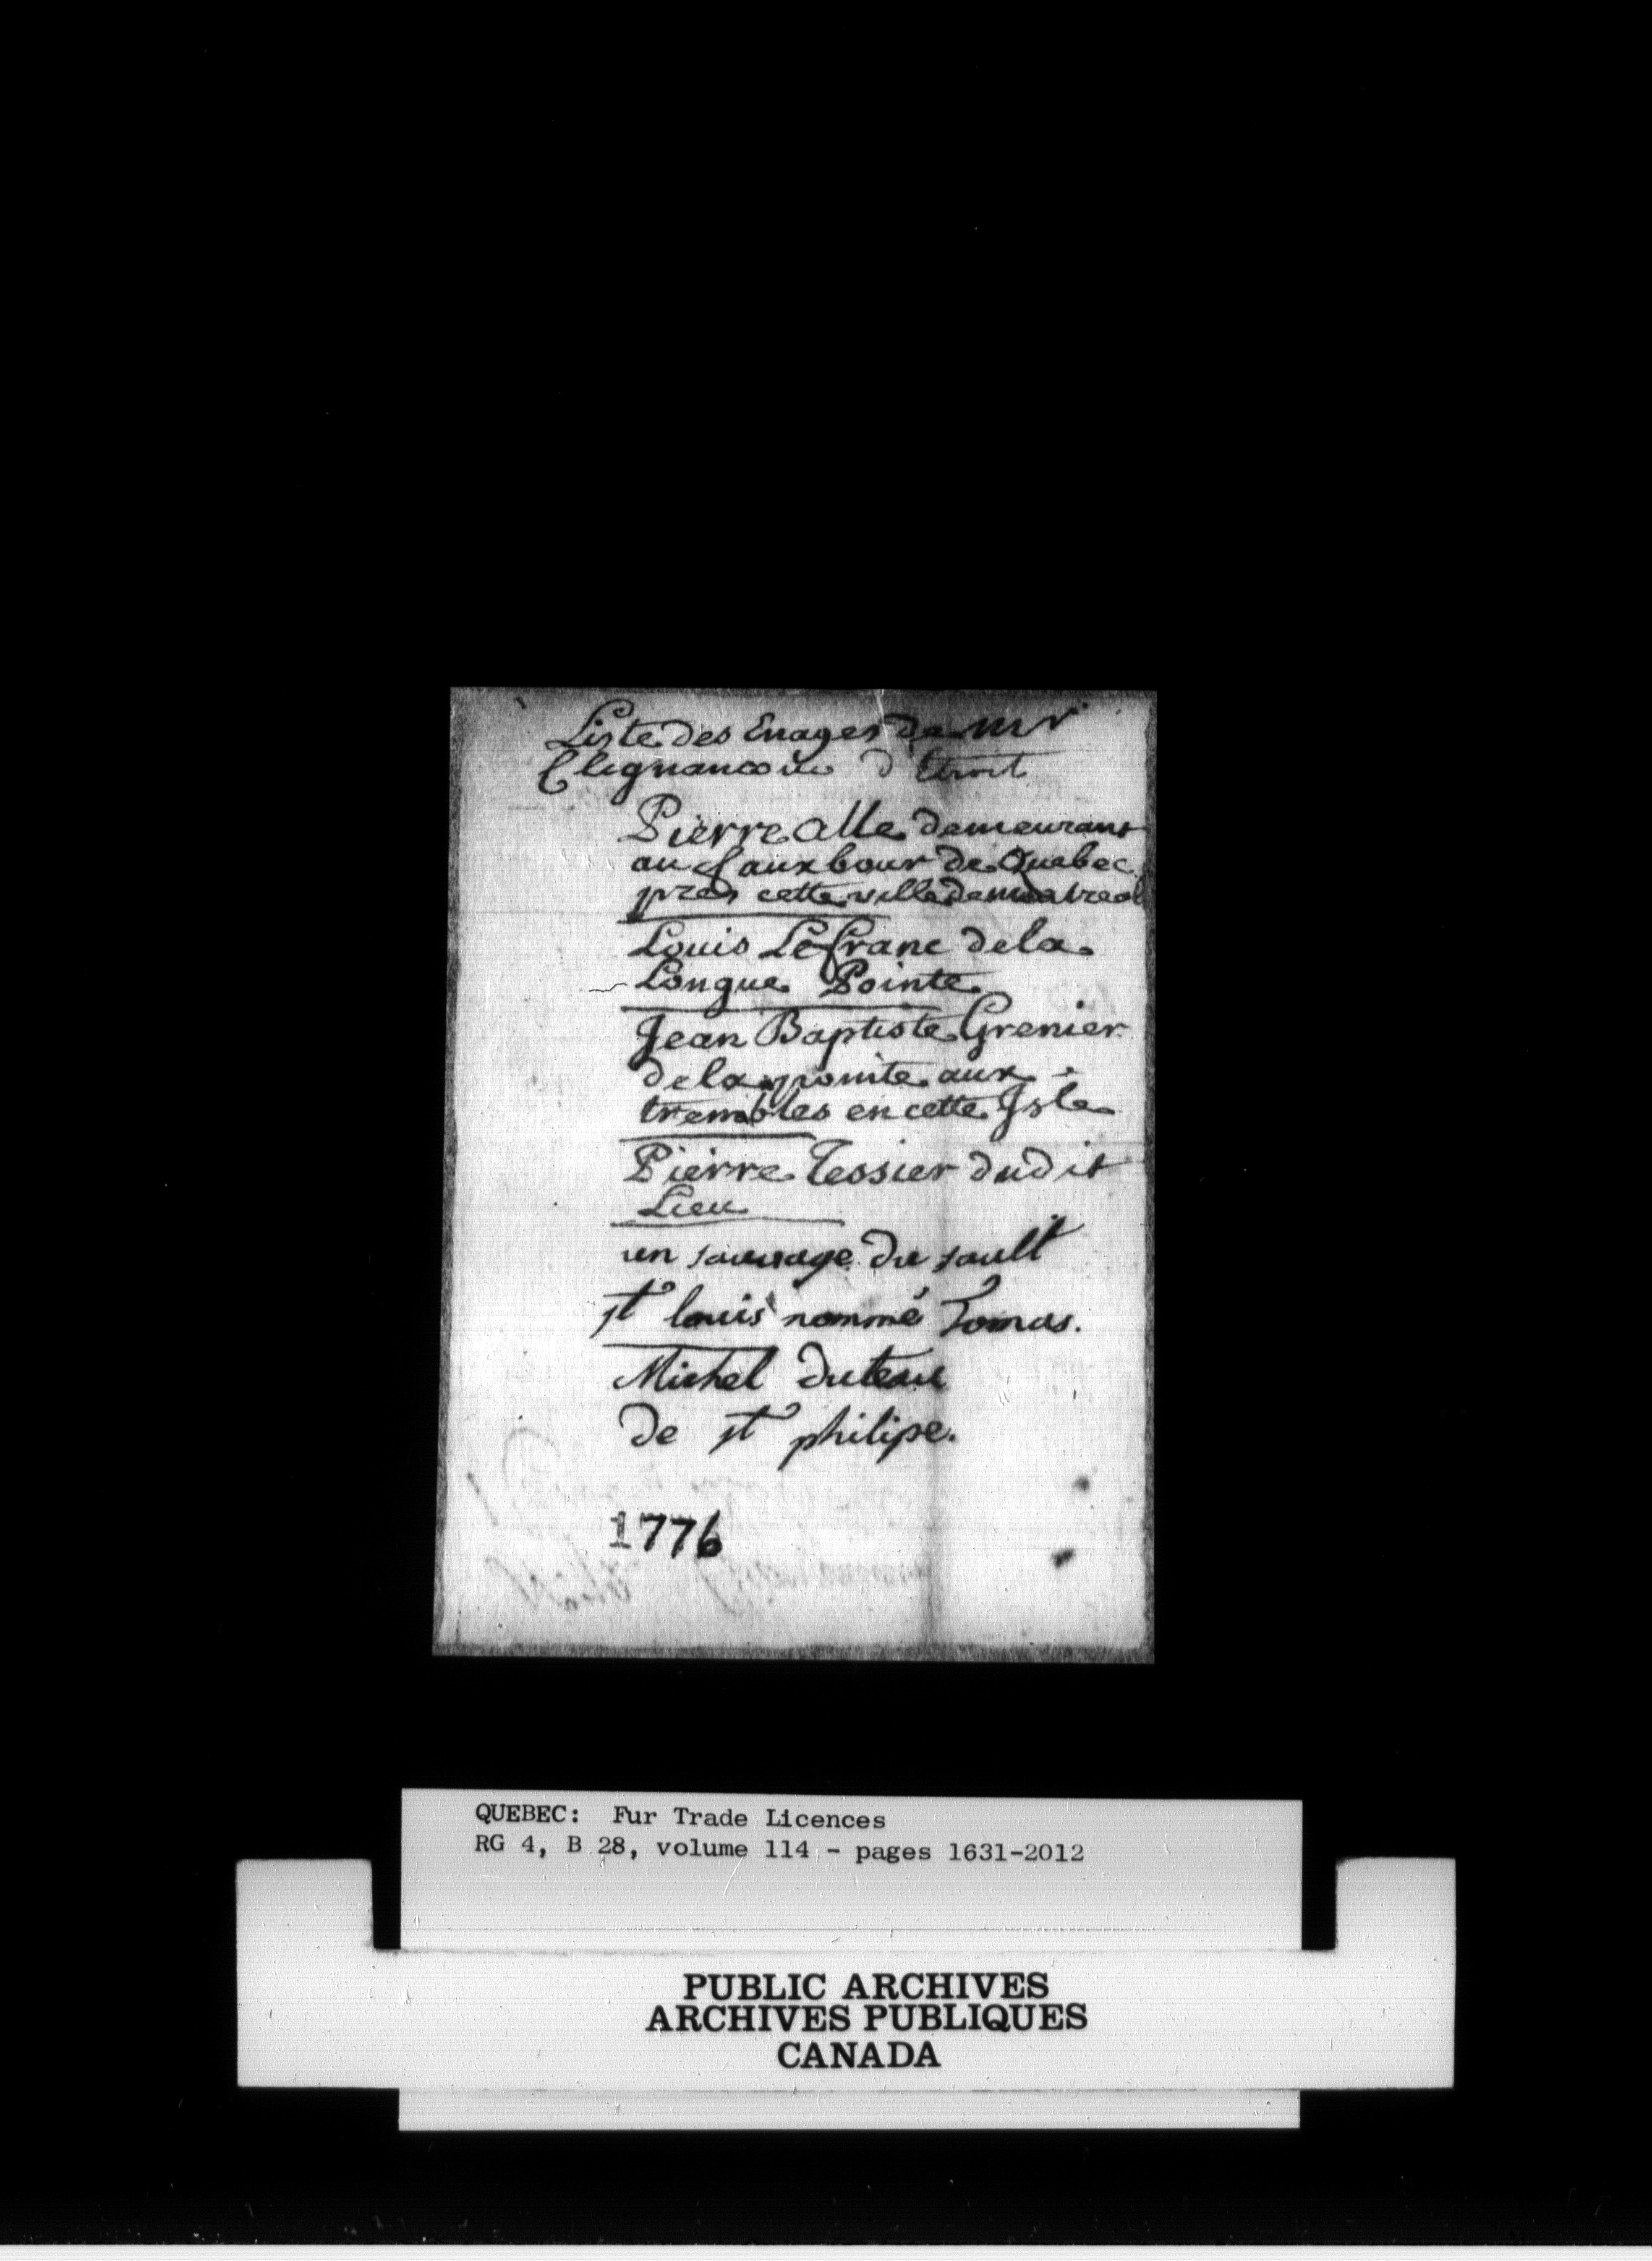 Liste des Enages de mr
Clignancour d'Etroit
Pierre Alle demeurant
au fauxbour de Quebec
pres cette ville de montreal
Louis Lefranc dela
Longue Pointe
Jean Baptiste Grenier
dela pointe aux
trembles en cette Isle
Pierre Tessier dudit
Lieu
un sauvage du sault
st louis nommé Tomas.
Michel duteau
de st philipe.
1776
QUEBEC: Fur Trade Licences
RG 4, B 28, volume 114 - pages 1631-2012
PUBLIC ARCHIVES
ARCHIVES PUBLIQUES
CANADA